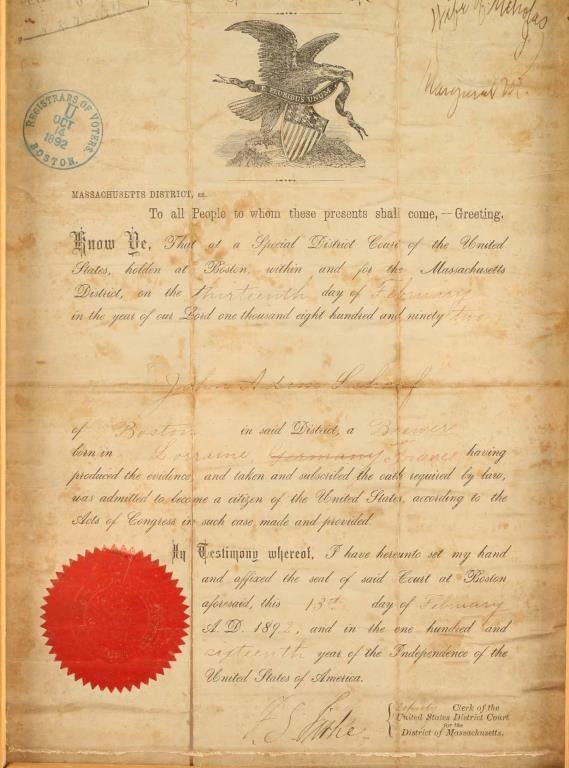 Wife of Nicholas
J.
Margaret M.
E PLURIBUS UNUM
REGISTRARS OF VOTERS.
U
OCT
14
1892
BOSTON.
MASSACHUSETTS DISTRICT, ss.
To all People to whom these presents shall come, — Greeting.
Know Ye, That at a Special District Court of the United
States, holden at Boston, within and for the Massachusetts
District, on the thirteenth day of February
in the year of our Lord one thousand eight hundred and ninety two
John Adam
of Boston in said District, a Brewer
born in Lorraine Germany France having
produced the evidence, and taken and subscribed the oath required by law,
was admitted to become a citizen of the United States, according to the
Acts of Congress in such case made and provided.
In Testimony whereof, I have hereunto set my hand
and affixed the seal of said Court at Boston
aforesaid, this 13th day of February
A.D. 1892, and in the one hundred and
sixteenth year of the Independence of the
United States of America.
Deputy Clerk of the
United States District Court
for the
District of Massachusetts.